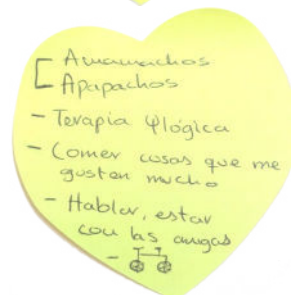 Amamachos
Apapachos
- Terapia Ψlógica
- Comer cosas que me
gusten mucho
- Hablar, estar
con las amigas
-